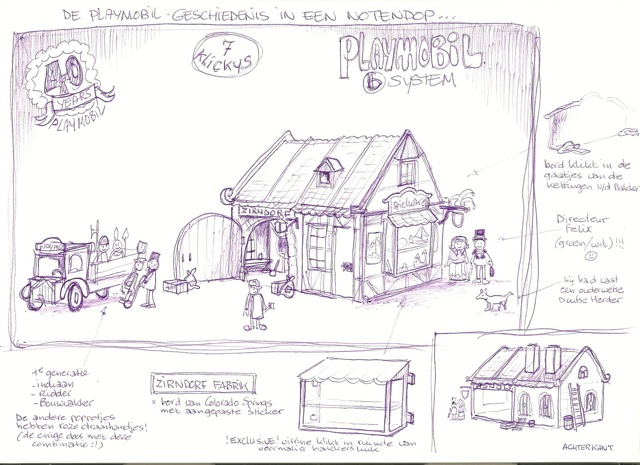 DE PLAYMOBIL-GESCHIEDENIS IN EEN NOTENDOP...
40
YEARS
PLAYMOBIL
7
KLICKYS
PLAYMOBIL
SYSTEM
ZIRNDORF
bord klikt in de
gaatjes van de
kettingen v/d Bakker
Directeur
Felix
(groen/wit)!!!
hij had vast
een ouderwetse
Duitse Herder
1e generatie
- indiaan
- Ridder
- Bouwvakker
De andere poppetjes
hebben roze draaihandjes!
(de enige doos met deze
combinatie!!)
ZIRNDORF FABRIK
= bord van Colorado Springs
met aangepaste sticker
!EXCLUSIVE! vitrine klikt in ruimte van
voormalig bakkersluik
ACHTERKANT